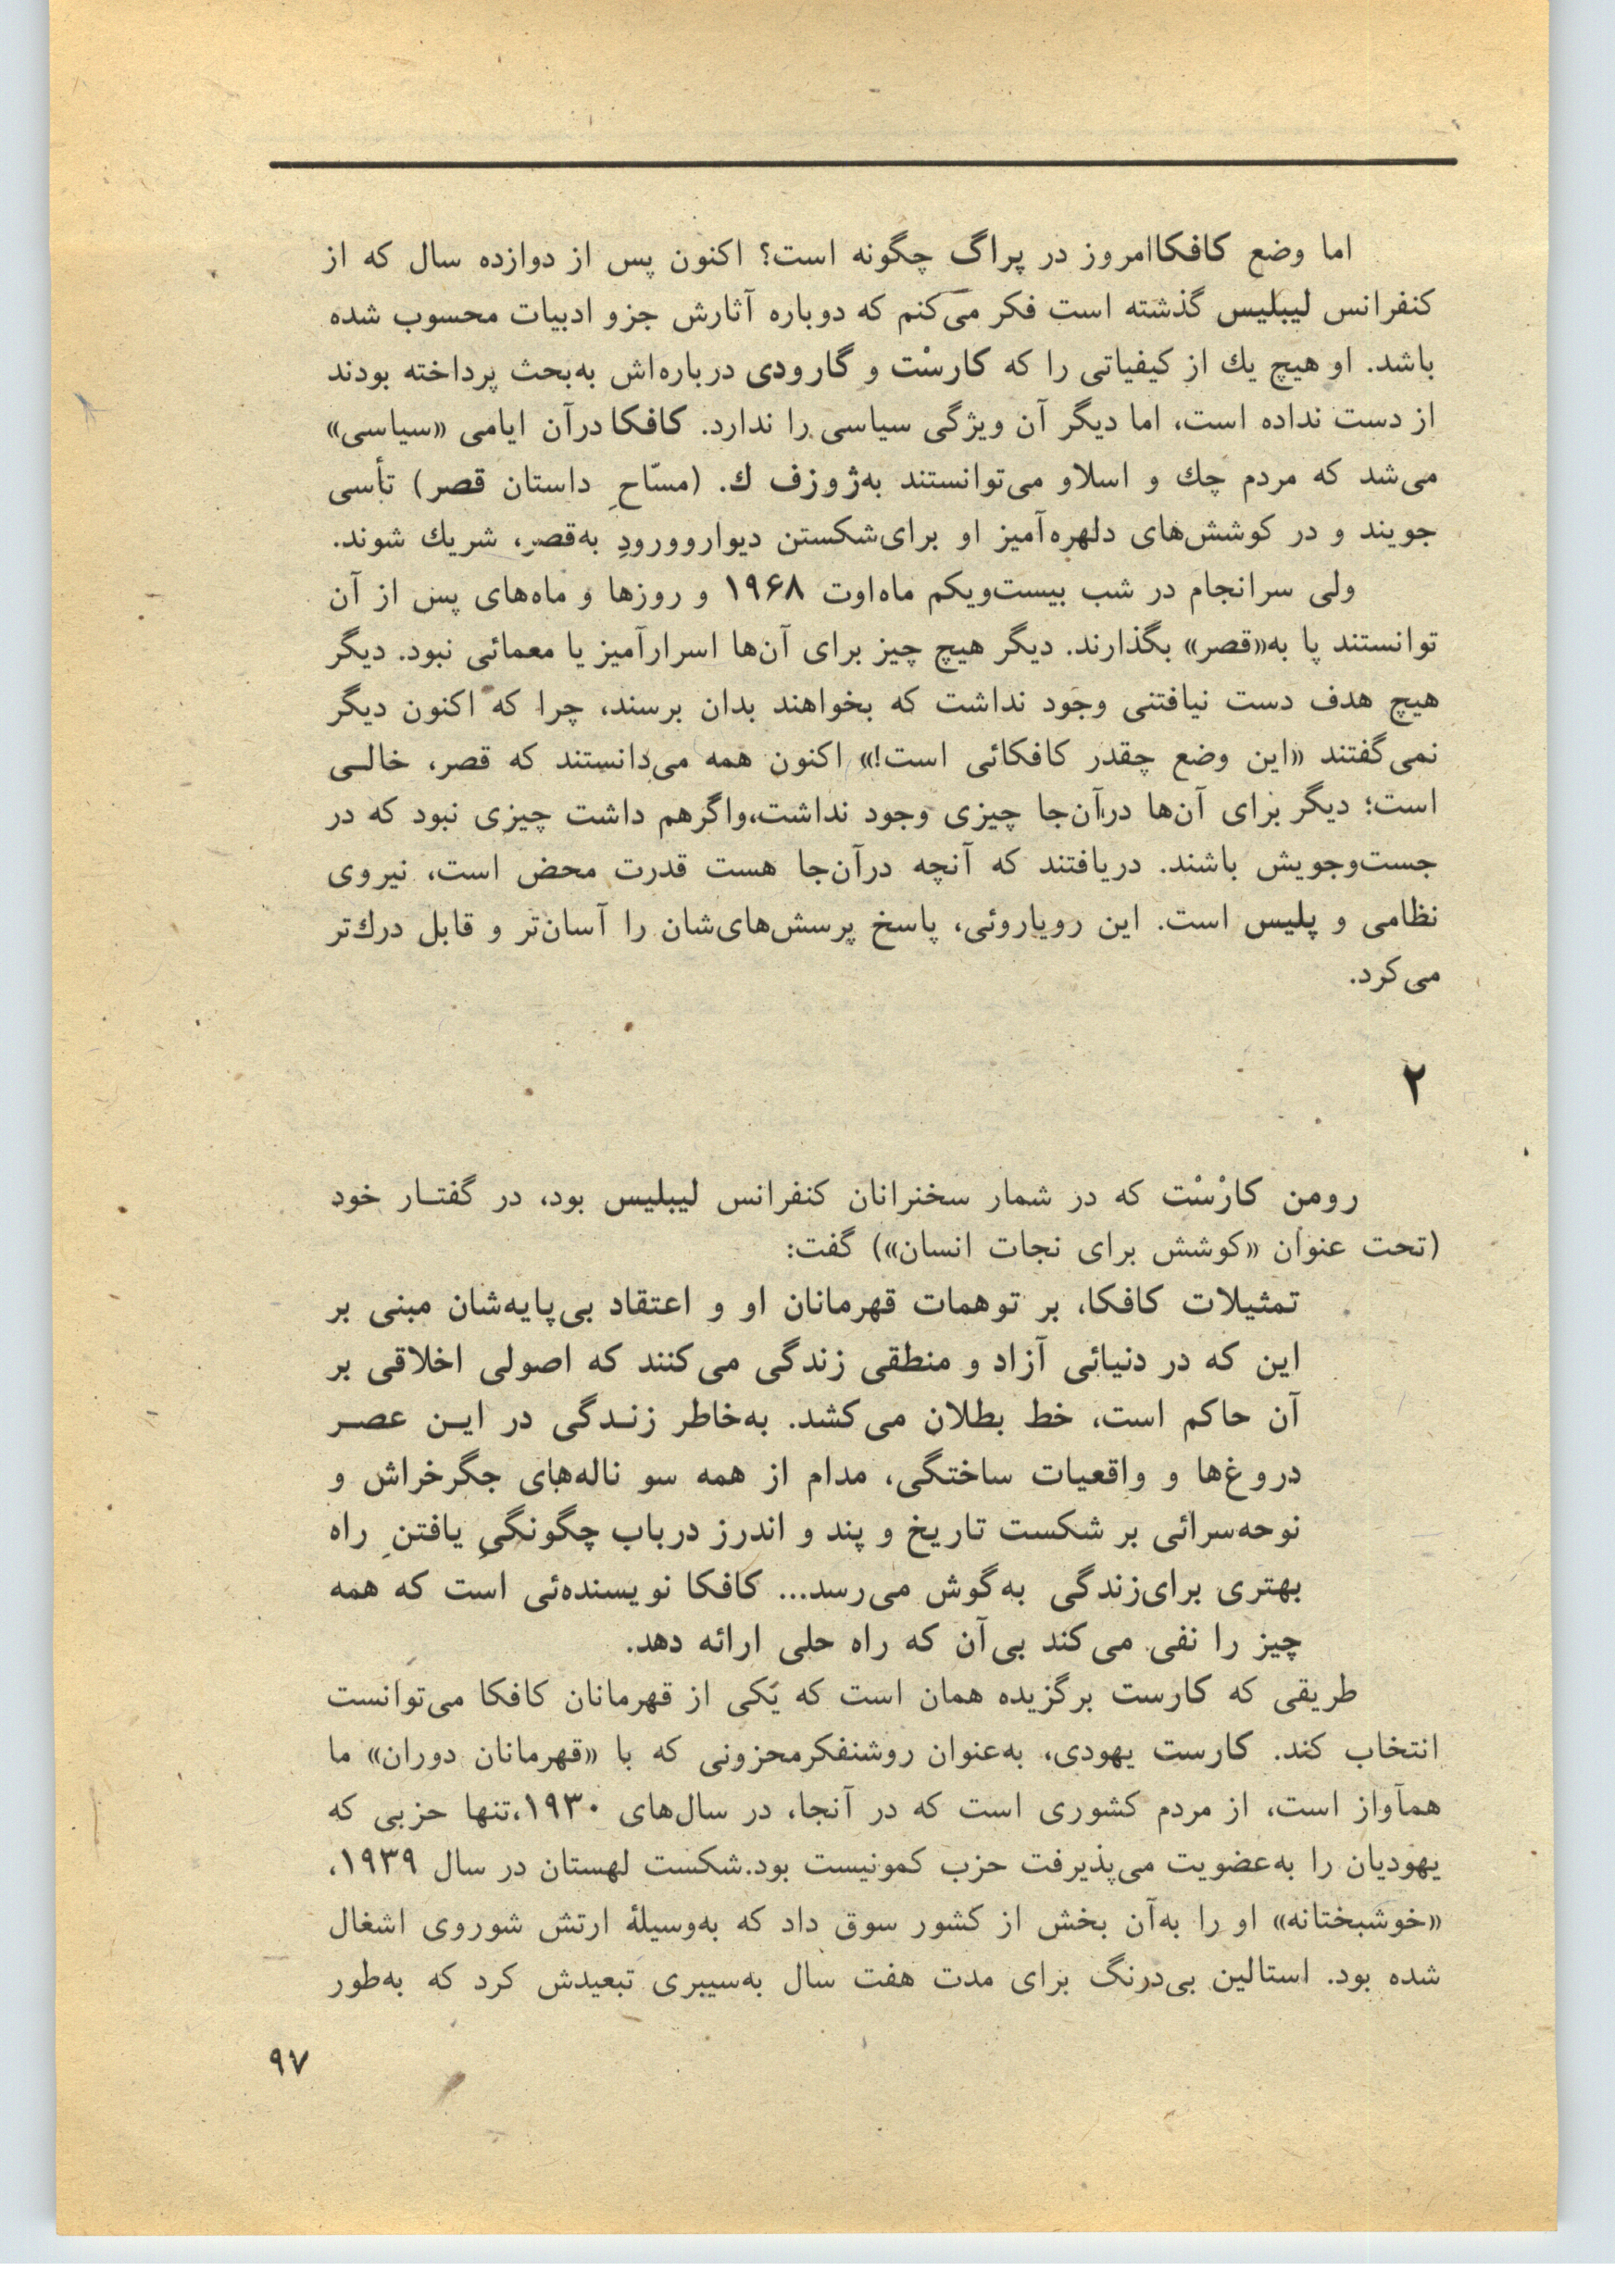 اما وضع کافکاامروز در پراگ چگونه است؟ اکنون پس از دوازده سال که از
کنفرانس لیبلیس گذشته است فکر می‌کنم که دوباره آثارش جزو ادبیات محسوب شده
باشد. او هیچ یك از کیفیاتی را که کارسْت و گارودی درباره‌اش به‌بحث پرداخته بودند
از دست نداده است، اما دیگر آن ویژگی سیاسی را ندارد. کافکا درآن ایامی «سیاسی»
می‌شد که مردم چك و اسلاو می‌توانستند به‌ژوزف ك. (مسّاحِ داستان قصر) تأسی
جویند و در کوشش‌های دلهره‌آمیز او برای‌شکستن دیواروورودِ به‌قصر، شریك شوند.
ولی سرانجام در شب بیست‌ویکم ماه‌اوت ۱۹۶۸ و روزها و ماه‌های پس از آن
توانستند پا به«قصر» بگذارند. دیگر هیچ چیز برای آن‌ها اسرارآمیز یا معمائی نبود. دیگر
هیچ هدف دست نیافتنی وجود نداشت که بخواهند بدان برسند، چرا که اکنون دیگر
نمی‌گفتند «این وضع چقدر کافکائی است!» اکنون همه می‌دانستند که قصر، خالـی
است؛ دیگر برای آن‌ها درآن‌جا چیزی وجود نداشت،واگرهم داشت چیزی نبود که در
جست‌وجویش باشند. دریافتند که آنچه درآن‌جا هست قدرت محض است، نیروی
نظامی و پلیس است. این رویاروئی، پاسخ پرسش‌های‌شان را آسان‌تر و قابل درك‌تر
می‌کرد.
۲
رومن کارْسْت که در شمار سخنرانان کنفرانس لیبلیس بود، در گفتـار خود
(تحت عنوان «کوشش برای نجات انسان») گفت:
تمثیلات کافکا، بر توهمات قهرمانان او و اعتقاد بی‌پایه‌شان مبنی بر
این که در دنیائی آزاد و منطقی زندگی می‌کنند که اصولی اخلاقی بر
آن حاکم است، خط بطلان می‌کشد. به‌خاطر زنـدگی در ایـن عصـر
دروغ‌ها و واقعیات ساختگی، مدام از همه سو ناله‌های جگرخراش و
نوحه‌سرائی بر شکست تاریخ و پند و اندرز درباب چگونگیِ یافتنِ راه
بهتری برای‌زندگی به‌گوش می‌رسد... کافکا نویسنده‌ئی است که همه
چیز را نفی می‌کند بی‌آن که راه حلی ارائه دهد.
طریقی که کارست برگزیده همان است که یکی از قهرمانان کافکا می‌توانست
انتخاب کند. کارست یهودی، به‌عنوان روشنفکرمحزونی که با «قهرمانان دوران» ما
همآواز است، از مردم کشوری است که در آنجا، در سال‌های ۱۹۳۰،تنها حزبی که
یهودیان را به‌عضویت می‌پذیرفت حزب کمونیست بود.شکست لهستان در سال ۱۹۳۹،
«خوشبختانه» او را به‌آن بخش از کشور سوق داد که به‌وسیلهٔ ارتش شوروی اشغال
شده بود. استالین بی‌درنگ برای مدت هفت سال به‌سیبری تبعیدش کرد که به‌طور
۹۷